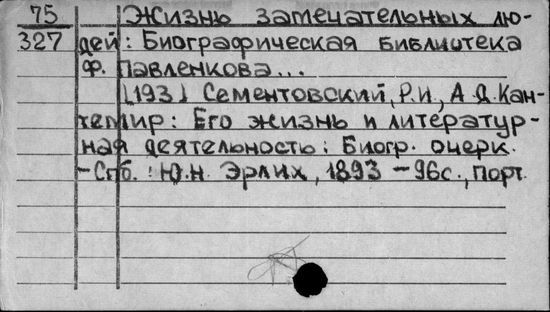 75 Жизнь замечательных лю-
327 дей: Биографическая библиотека
Ф. Павленкова...
[193] Сементовский, Р.И., А.Д. Кан-
темир: Его жизнь и литератур-
ная деятельность: Биогр. очерк.
– Спб.: Ю.Н. Эрлих, 1893 – 96с., порт.